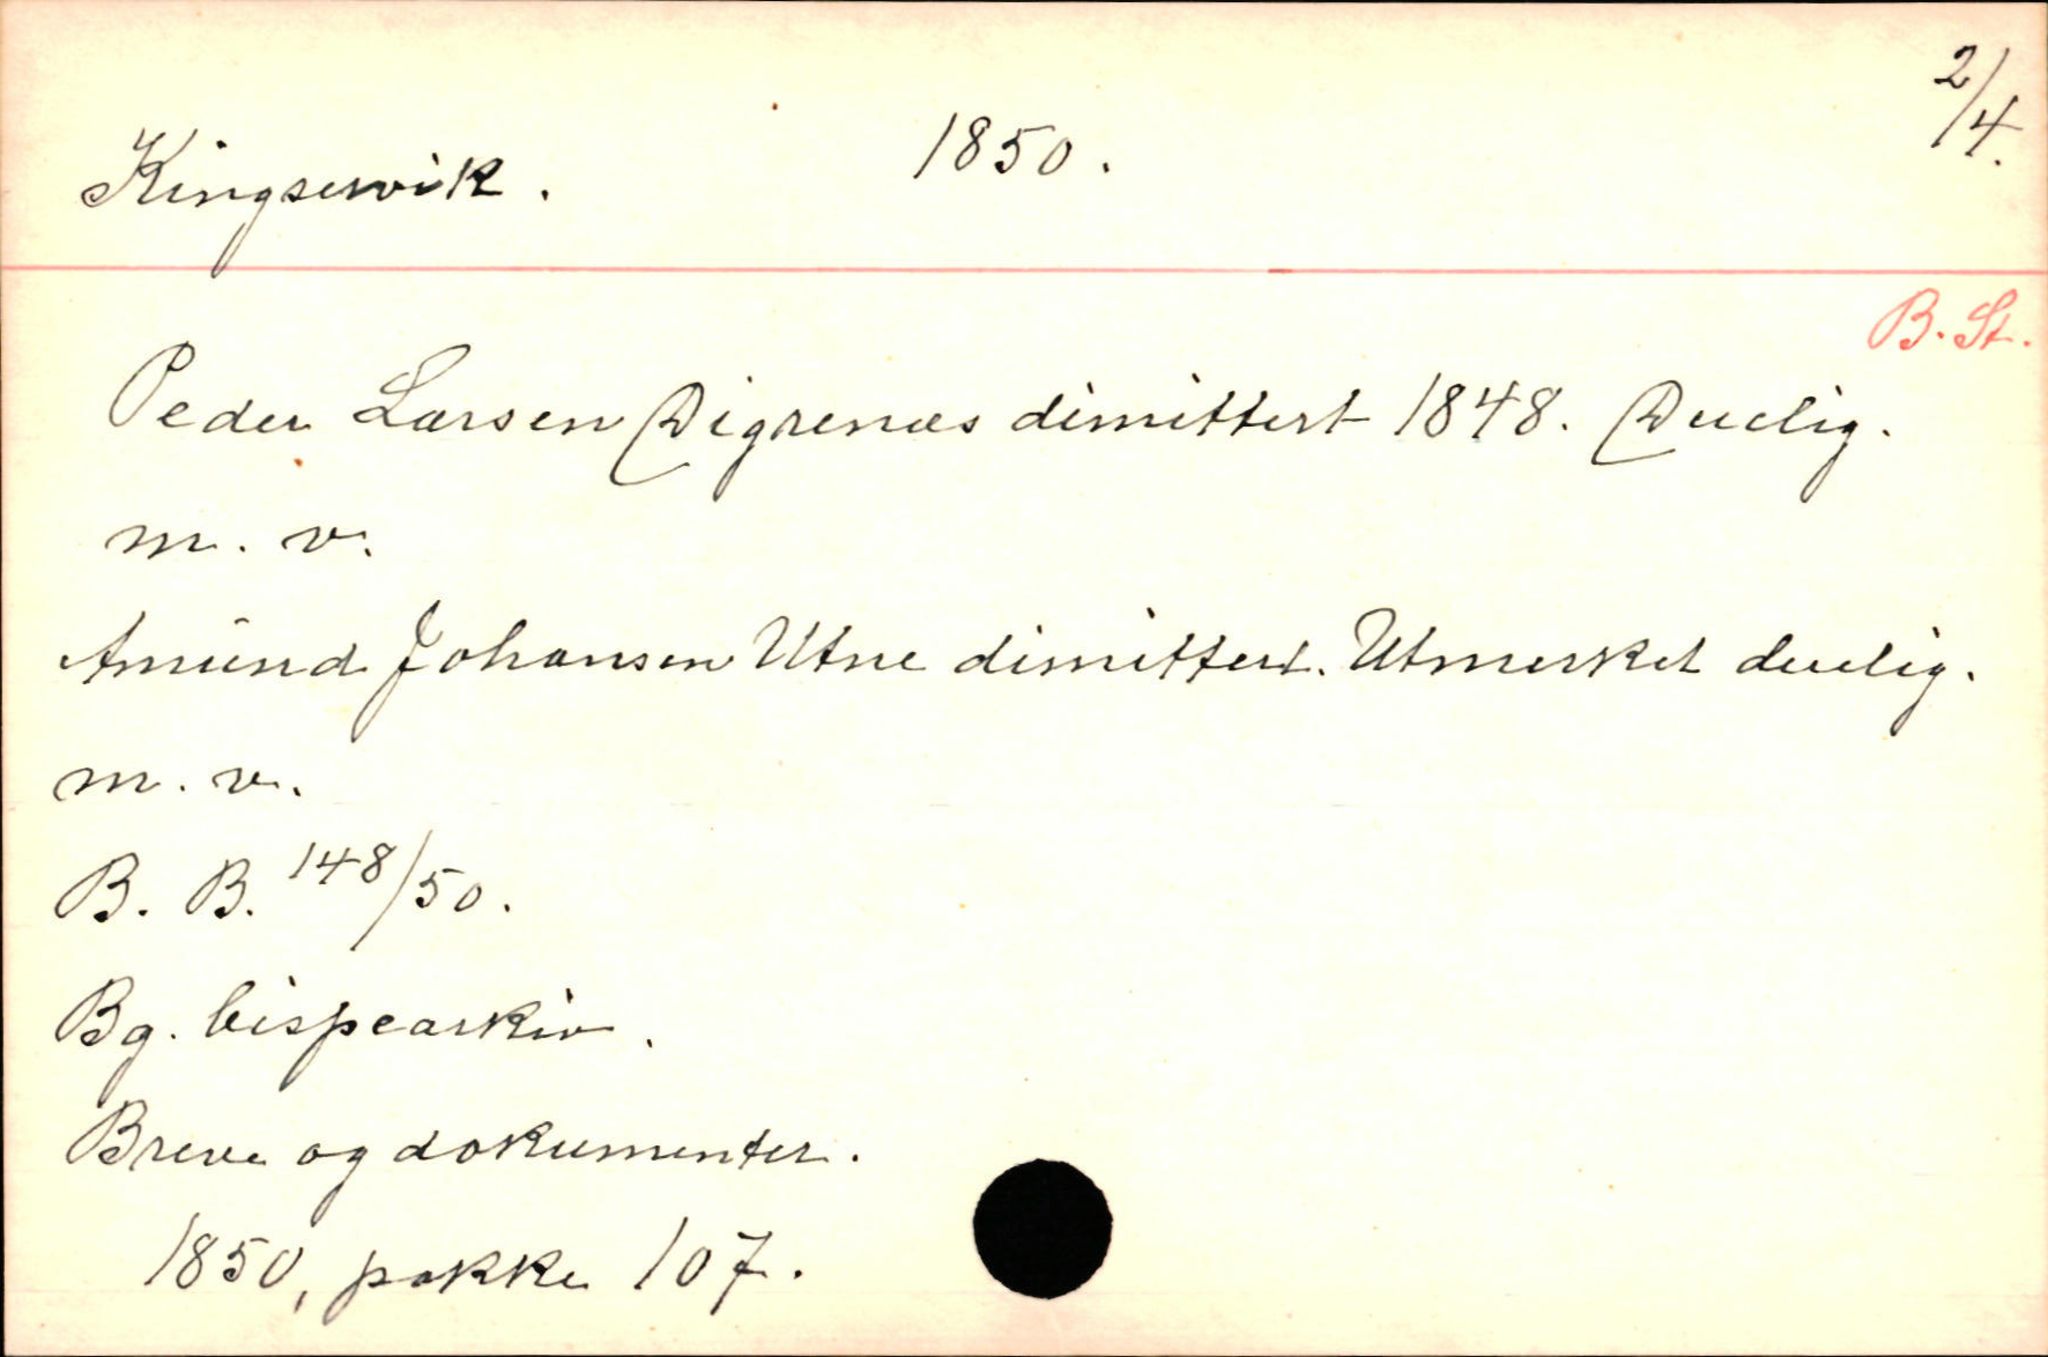 Kingservik. 1850. 2/4.
B. St.
Peder Larsen Digrenæs dimittert 1848. Duelig.
m. v.
Amund Johansen Utne dimittert. Utmerket duelig.
m. v.
B. B. 148/50.
Bg. bispearkiv.
Breve og dokumenter.
1850, pakke 107.